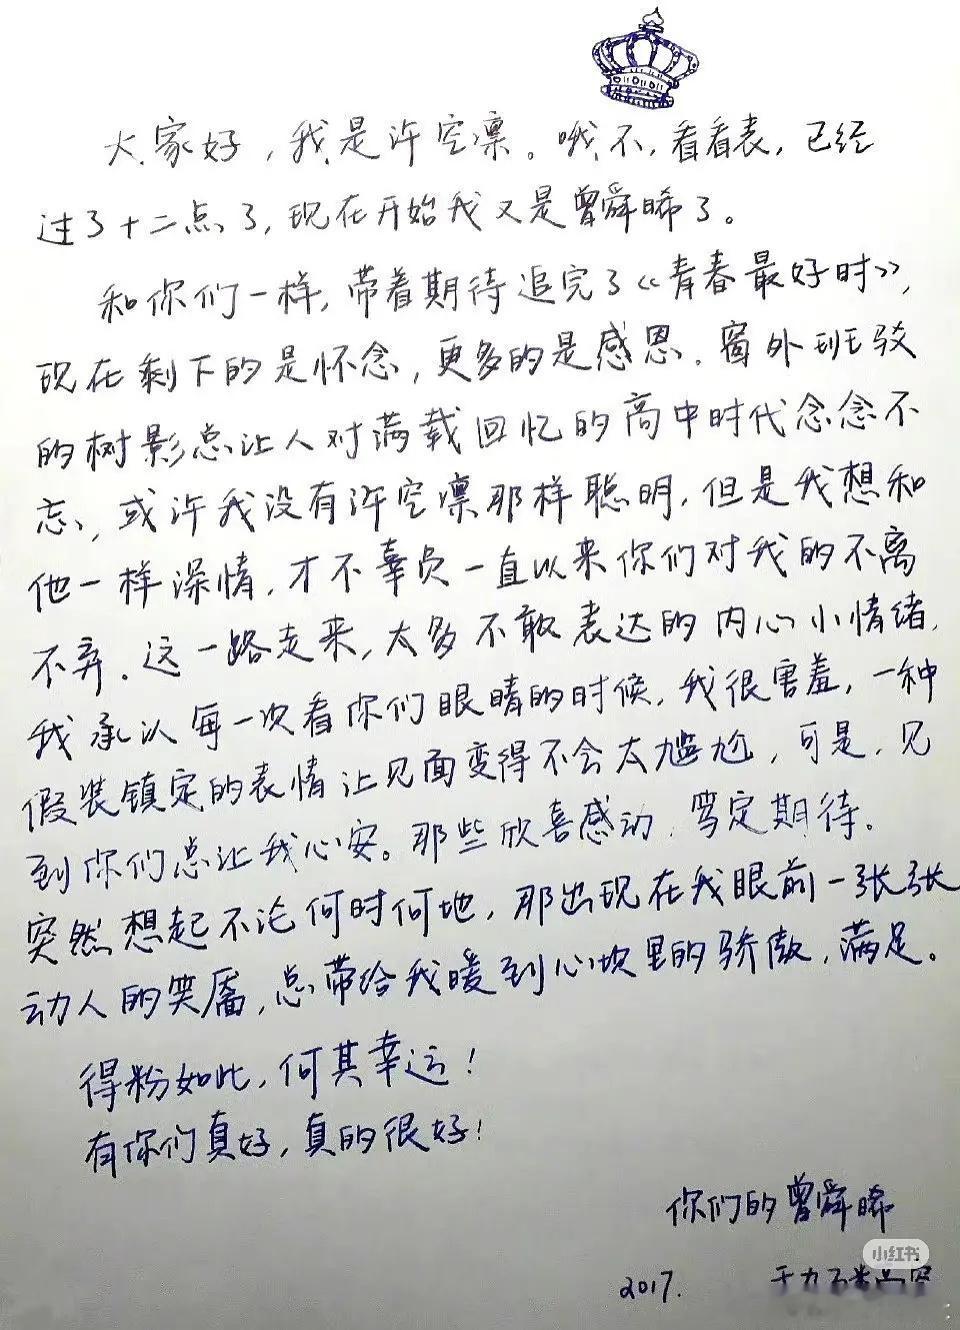 大家好，我是许空凛。哦不，看看表，已经
过了十二点了，现在开始我又是曾舜晞了。
和你们一样，带着期待追完了《青春最好时》，
现在剩下的是怀念，更多的是感恩。窗外班驳
的树影总让人对满载回忆的高中时代念念不
忘，或许我没有许空凛那样聪明，但是我想和
他一样深情，才不辜负一直以来你们对我的不离
不弃。这一路走来，太多不敢表达的内心小情绪，
我承认每一次看你们眼睛的时候，我很害羞，一种
假装镇定的表情让见面变得不会太尴尬，可是，见
到你们总让我心安。那些欣喜感动，笃定期待。
突然想起不论何时何地，那出现在我眼前一张张
动人的笑靥，总带给我暖到心坎里的骄傲，满足。
得粉如此，何其幸运！
有你们真好，真的很好！
你们的曾舜晞
小红书
2017.